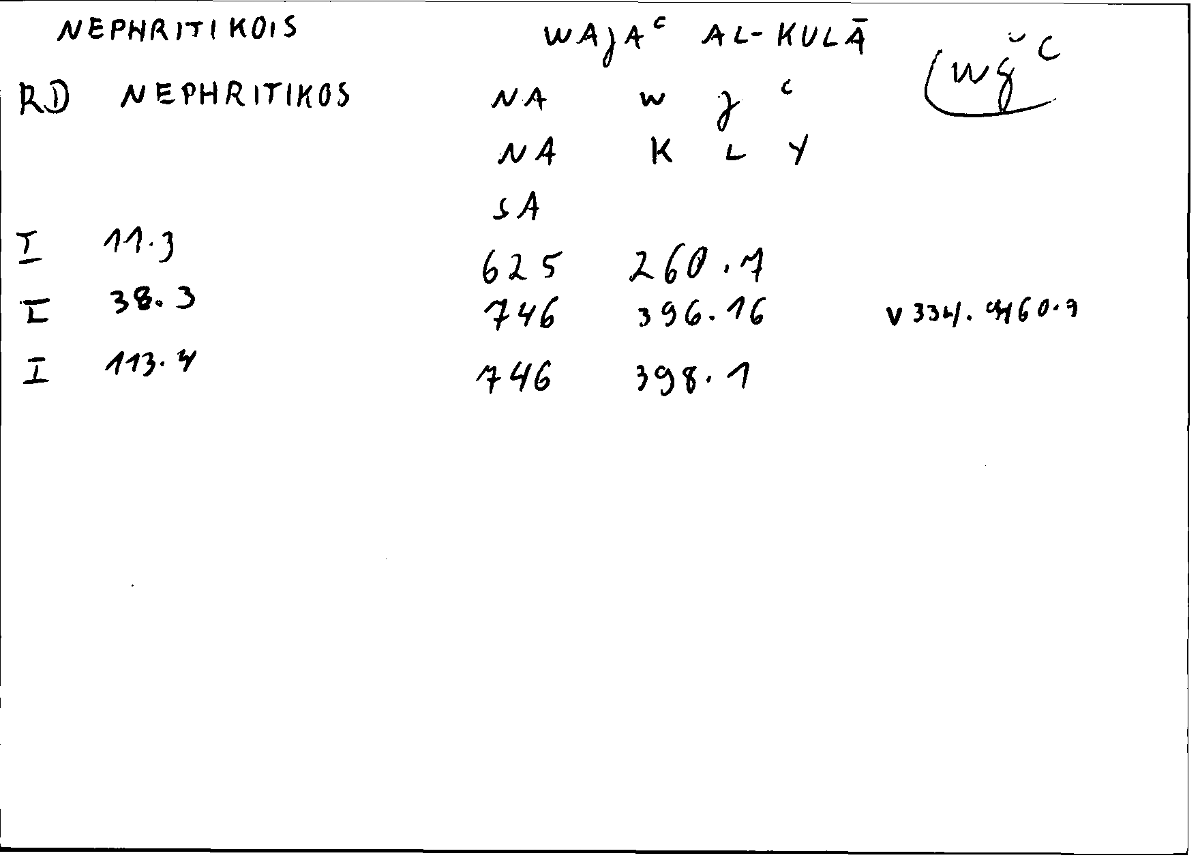 NEPHRITIKOIS WAJAᶜ AL-KULĀ
RD NEPHRITIKOS NA W J ᶜ wǧᶜ
NA K L Y
SA
I 11.3 625 260.7
I 38.3 746 396.16
I 113.4 746 398.1